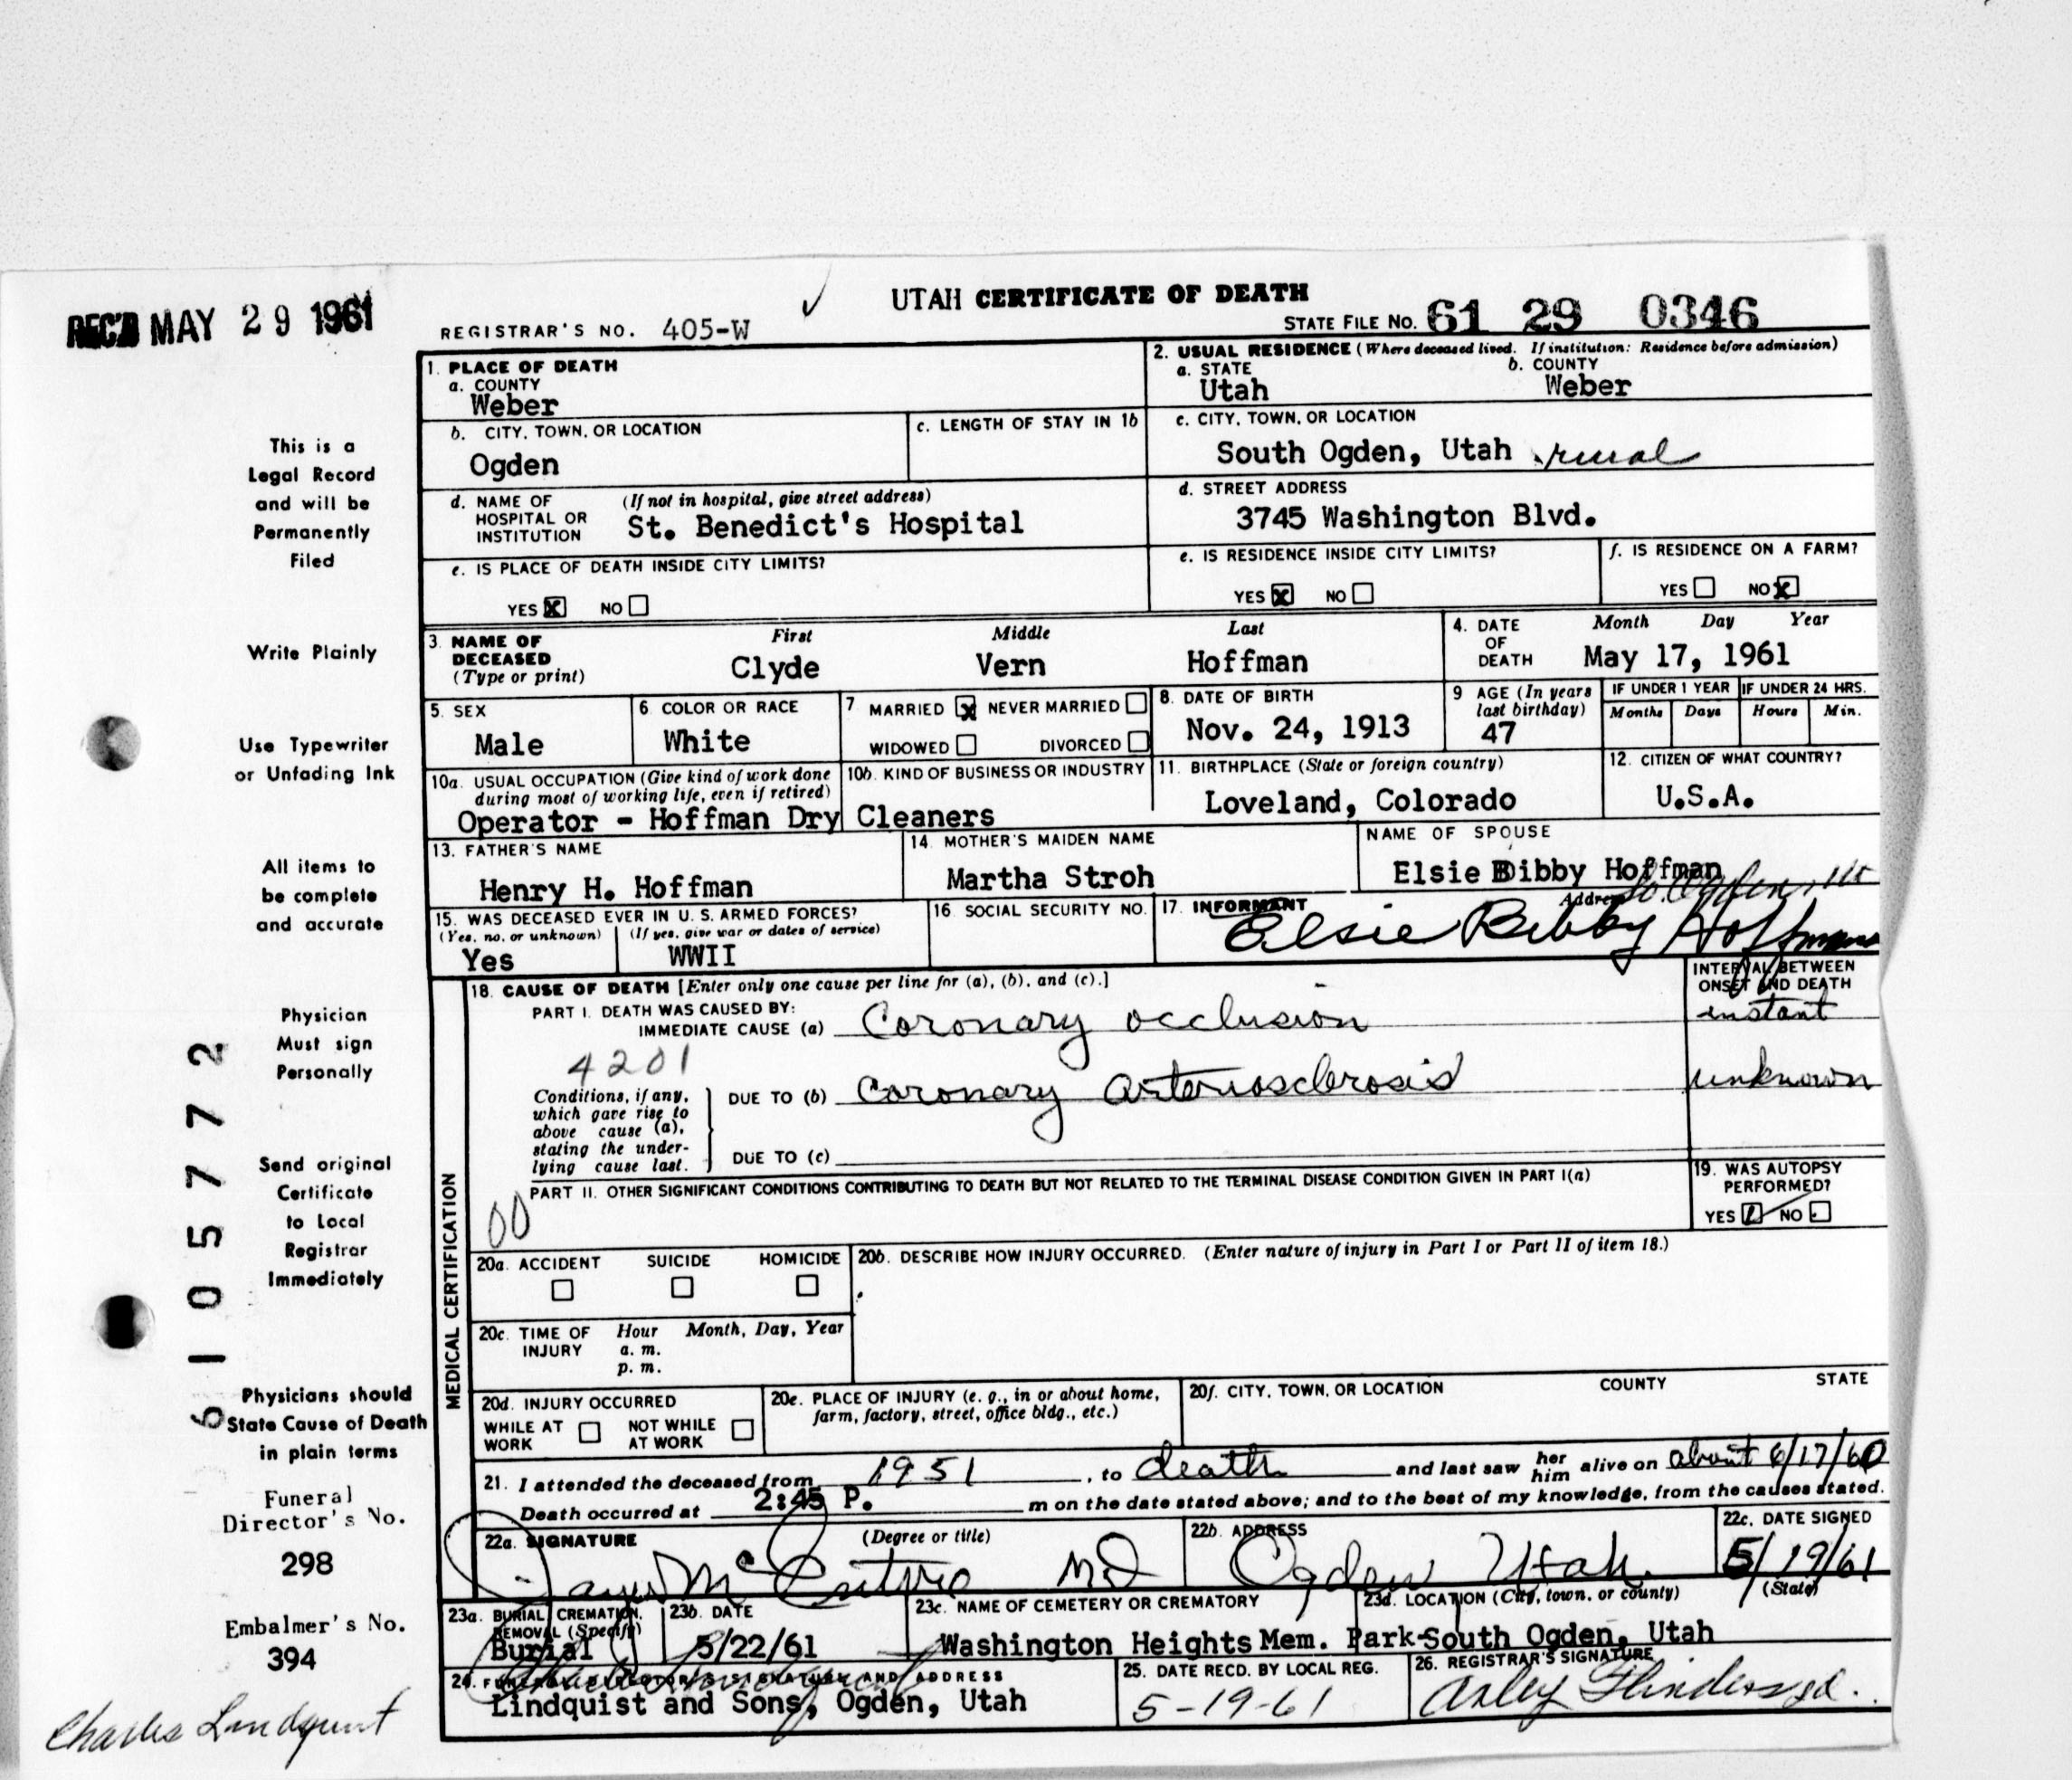 REC'D MAY 29 1961
UTAH CERTIFICATE OF DEATH
REGISTRAR'S NO. 405-W
STATE FILE NO. 61 29 0346
1. PLACE OF DEATH
a. COUNTY
Weber
2. USUAL RESIDENCE (Where deceased lived. If institution: Residence before admission)
a. STATE b. COUNTY
Utah Weber
b. CITY, TOWN, OR LOCATION
Ogden
c. LENGTH OF STAY IN 1b
c. CITY, TOWN, OR LOCATION
South Ogden, Utah rural
d. NAME OF HOSPITAL OR INSTITUTION (If not in hospital, give street address)
St. Benedict's Hospital
d. STREET ADDRESS
3745 Washington Blvd.
e. IS PLACE OF DEATH INSIDE CITY LIMITS?
YES X NO
e. IS RESIDENCE INSIDE CITY LIMITS?
YES X NO
f. IS RESIDENCE ON A FARM?
YES NO X
3. NAME OF DECEASED (Type or print)
First Middle Last
Clyde Vern Hoffman
4. DATE OF DEATH Month Day Year
May 17, 1961
5. SEX
Male
6. COLOR OR RACE
White
7 MARRIED X NEVER MARRIED
WIDOWED DIVORCED
8. DATE OF BIRTH
Nov. 24, 1913
9 AGE (In years last birthday)
47
IF UNDER 1 YEAR IF UNDER 24 HRS.
Months Days Hours Min.
10a. USUAL OCCUPATION (Give kind of work done during most of working life, even if retired)
10b. KIND OF BUSINESS OR INDUSTRY
Operator - Hoffman Dry Cleaners
11. BIRTHPLACE (State or foreign country)
Loveland, Colorado
12. CITIZEN OF WHAT COUNTRY?
U.S.A.
13. FATHER'S NAME
Henry H. Hoffman
14. MOTHER'S MAIDEN NAME
Martha Stroh
NAME OF SPOUSE
Elsie Bibby Hoffman
15. WAS DECEASED EVER IN U. S. ARMED FORCES?
(Yes, no, or unknown) (If yes, give war or dates of service)
Yes WWII
16. SOCIAL SECURITY NO.
17. INFORMANT Address So. Ogden, Ut
Elsie Bibby Hoffman
MEDICAL CERTIFICATION
18. CAUSE OF DEATH [Enter only one cause per line for (a), (b), and (c).]
INTERVAL BETWEEN ONSET AND DEATH
PART I. DEATH WAS CAUSED BY:
IMMEDIATE CAUSE (a) Coronary occlusion instant
4201
Conditions, if any, which gave rise to above cause (a), stating the underlying cause last.
DUE TO (b) Coronary arteriosclerosis unknown
DUE TO (c)
PART II. OTHER SIGNIFICANT CONDITIONS CONTRIBUTING TO DEATH BUT NOT RELATED TO THE TERMINAL DISEASE CONDITION GIVEN IN PART I(a)
00
19. WAS AUTOPSY PERFORMED?
YES NO
20a. ACCIDENT SUICIDE HOMICIDE
20b. DESCRIBE HOW INJURY OCCURRED. (Enter nature of injury in Part I or Part II of item 18.)
20c. TIME OF INJURY Hour Month, Day, Year
a. m.
p. m.
20d. INJURY OCCURRED
WHILE AT WORK NOT WHILE AT WORK
20e. PLACE OF INJURY (e. g., in or about home, farm, factory, street, office bldg., etc.)
20f. CITY, TOWN, OR LOCATION COUNTY STATE
21. I attended the deceased from 1951, to death and last saw her him alive on about 6/17/60
Death occurred at 2:45 P. m on the date stated above; and to the best of my knowledge, from the causes stated.
22a. SIGNATURE (Degree or title)
McEntire MD
22b. ADDRESS
Ogden Utah.
22c. DATE SIGNED
5/19/61
23a. BURIAL, CREMATION, REMOVAL (Specify)
Burial
23b. DATE
5/22/61
23c. NAME OF CEMETERY OR CREMATORY
23d. LOCATION (City, town, or county) (State)
Washington Heights Mem. Park-South Ogden, Utah
24. FUNERAL DIRECTOR'S SIGNATURE AND ADDRESS
Lindquist and Sons, Ogden, Utah
25. DATE RECD. BY LOCAL REG.
5-19-61
26. REGISTRAR'S SIGNATURE
Arley Flinders
This is a
Legal Record
and will be
Permanently
Filed
Write Plainly
Use Typewriter
or Unfading Ink
All items to
be complete
and accurate
Physician
Must sign
Personally
Send original
Certificate
to Local
Registrar
Immediately
Physicians should
State Cause of Death
in plain terms
6105772
Funeral
Director's No.
298
Embalmer's No.
394
Charles Lindquist